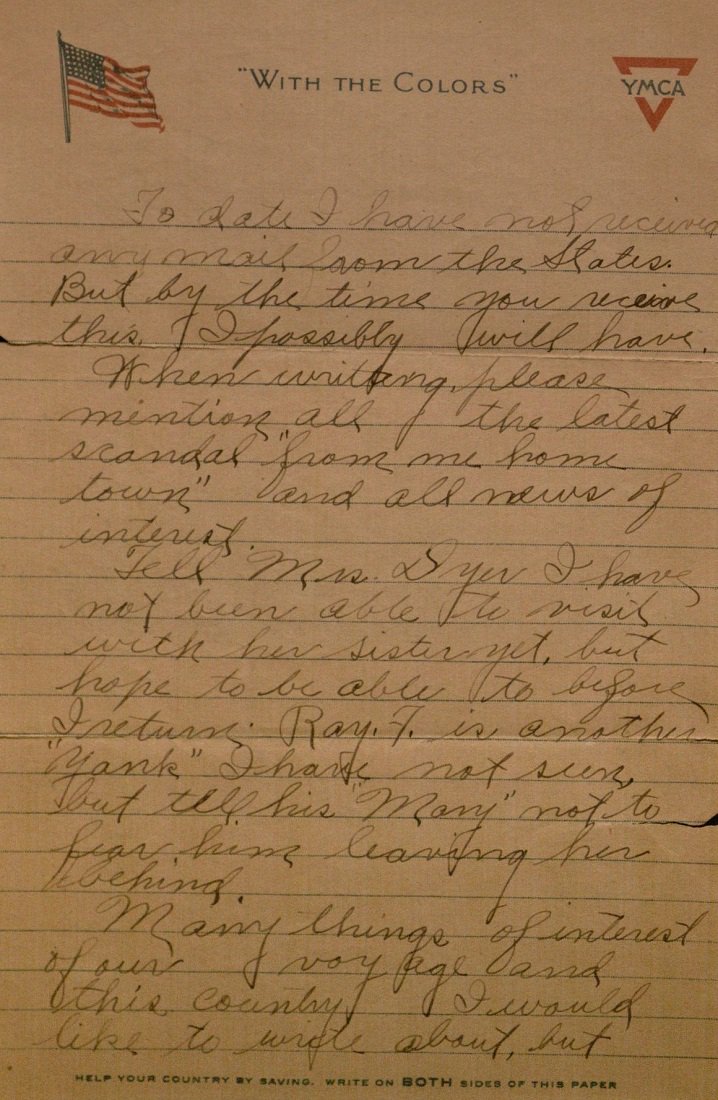 "WITH THE COLORS"
YMCA
To date I have not received
any mail from the States.
But by the time you receive
this, I possibly will have.
When writting, please
mention all the latest
scandal "from me home
town" and all news of
interest.
Tell Mrs. Dyer I have
not been able to visit
with her sister yet, but
hope to be able to before
I return. Ray. F. is another
"Yank" I have not seen,
but tell his "Mary" not to
fear him leaving her
behind.
Many things of interest
of our voyage and
this country I would
like to write about, but
HELP YOUR COUNTRY BY SAVING. WRITE ON BOTH SIDES OF THIS PAPER